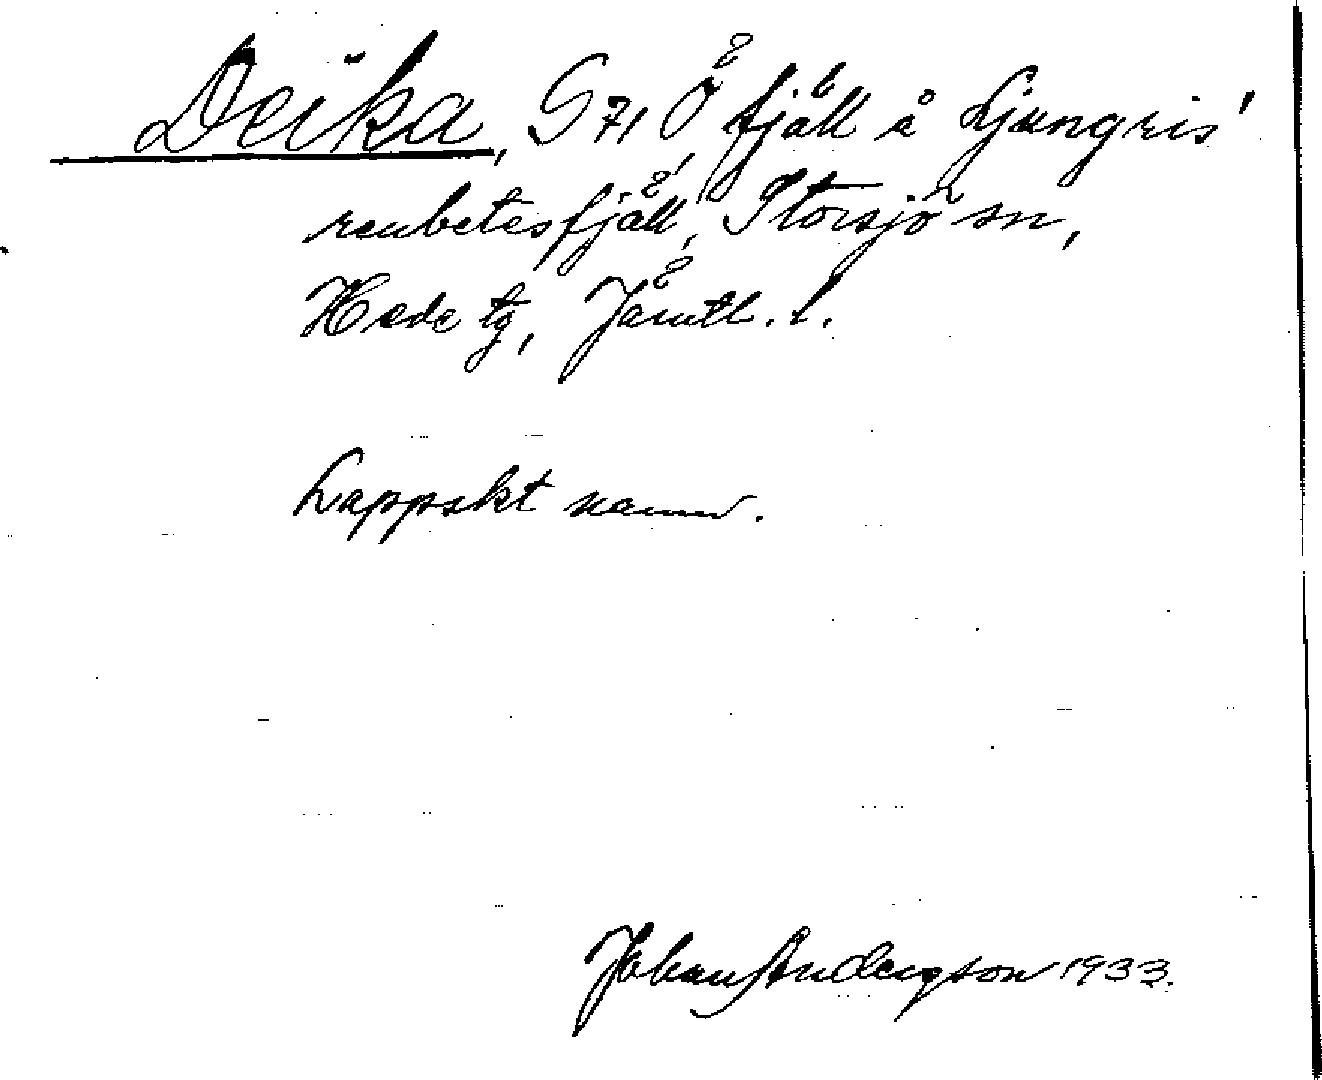 Deika, G 71 Ö fjäll å Ljungris'
renbetesfjäll, Storsjö sn,
Hede tg, Jämtl. l.
Lappskt namn.
Johan Anderson 1933.